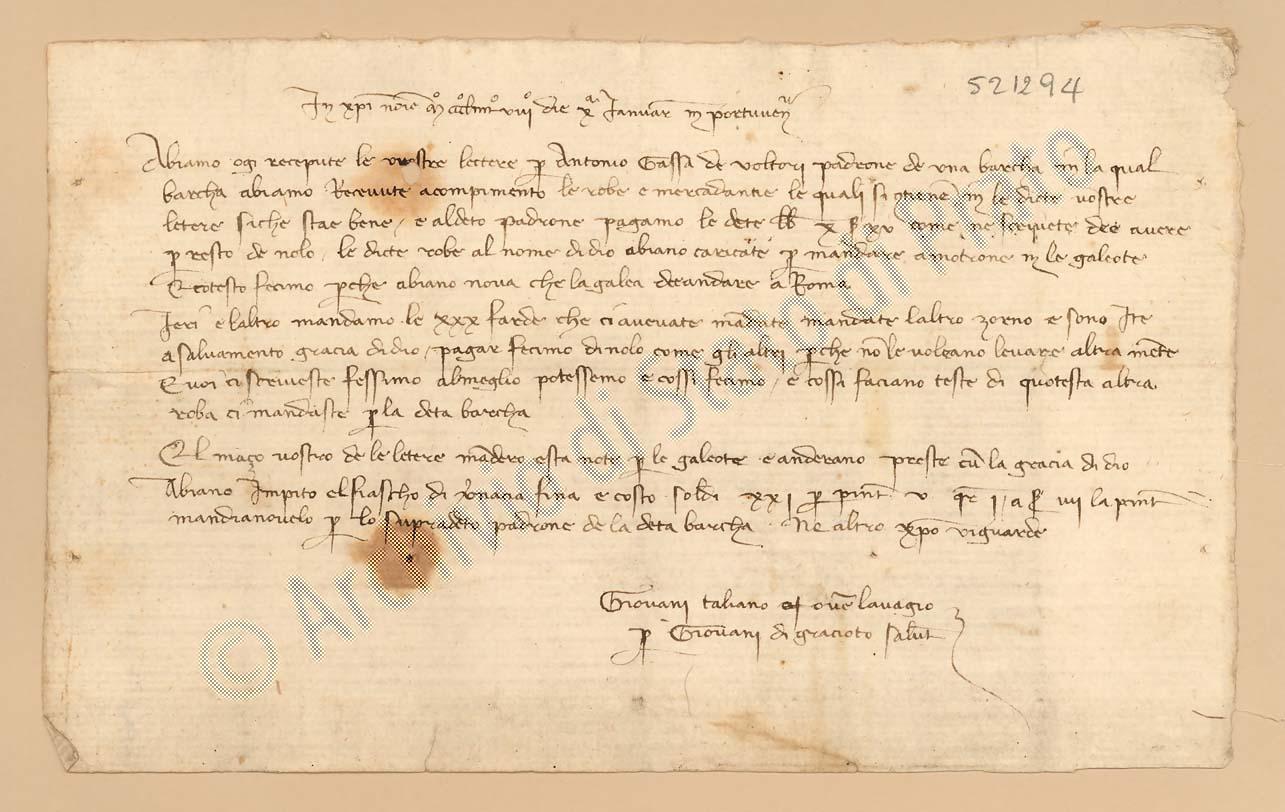 521294
In xpi noie die xª Januar in portuven
Abiamo ogi recepute le vostre lectere p Antonio Gassa de voltori padrone de una barcha in la qual
barcha abiamo Recevute acompimento le robe e mercadantie le quali si in le dicte vostre
letere siche stae bene / e aldeto padrone pagamo le dete lb x s xv come ne scrivete dee avere
p resto de nolo / le dicte robe al nome di dio abiano caricate p mandare a motrone in le galeote
E cotesto fecimo perche abiano nova che la galea dee andare a Roma
Ieri e laltro mandamo le xxx farde che ci avevate mandate mandate laltro zorno e sono ite
a salvamento gracia di dio / pagar fecimo di nolo come gli altri perche no le voleano levare altra mete
E voi ci scriveste fessimo al meglio potessemo e cossi fecimo / e cossi faciano teste di quotesta altra
roba ci mandaste p la deta barcha
El maço vostro de le letere madero esta note p le galeote e anderano preste cu la gracia di dio
Abiano Impito el fiascho di fina e costo soldi xxi p pint v qr I / a s iiii la pint
mandianovelo p lo supradeto padrone de la deta barcha . Ne altro xpo vi guarde
Giovani taliano et lavagio
p Giovani di gracioto salut
© Archivio di Stato di Prato